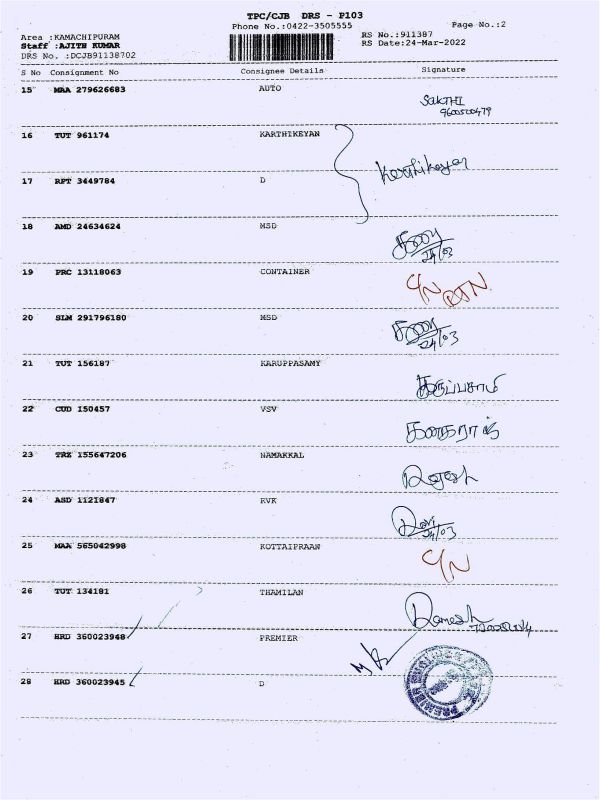 TPC/CJB DRS - P103
Phone No.:0422-3505555
Page No.:2
Area :KAMACHIPURAM
RS No.:911387
Staff :AJITH KUMAR
RS Date:24-Mar-2022
DRS No. :DCJB91138702
S No Consignment No Consignee Details Signature
15 MAA 279626683 AUTO SAKTHI
9600500479
16 TUT 961174 KARTHIKEYAN
Karthikeyan
17 RPT 3449784 D
18 AMD 24634624 MSD
24/03
19 PRC 13118063 CONTAINER C/N RTN
20 SLM 291796180 MSD
24/03
21 TUT 156187 KARUPPASAMY கருப்பசாமி
22 CUD 150457 VSV
23 TRZ 155647206 NAMAKKAL Rajesh
24 ASD 1121847 RVK Ravi
24/03
25 MAA 565042998 KOTTAIPRAAN C/N
26 TUT 134181 THAMILAN Ramesh
27 HRD 360023948 PREMIER
28 HRD 360023945 D
PREMIER